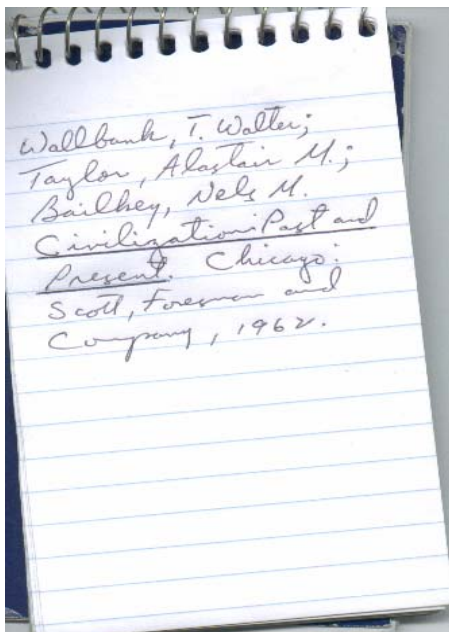 Wallbank, T. Walter;
Taylor, Alastair M.;
Bailkey, Nels M.
Civilization: Past and
Present. Chicago:
Scott, Foresman and
Company, 1962.